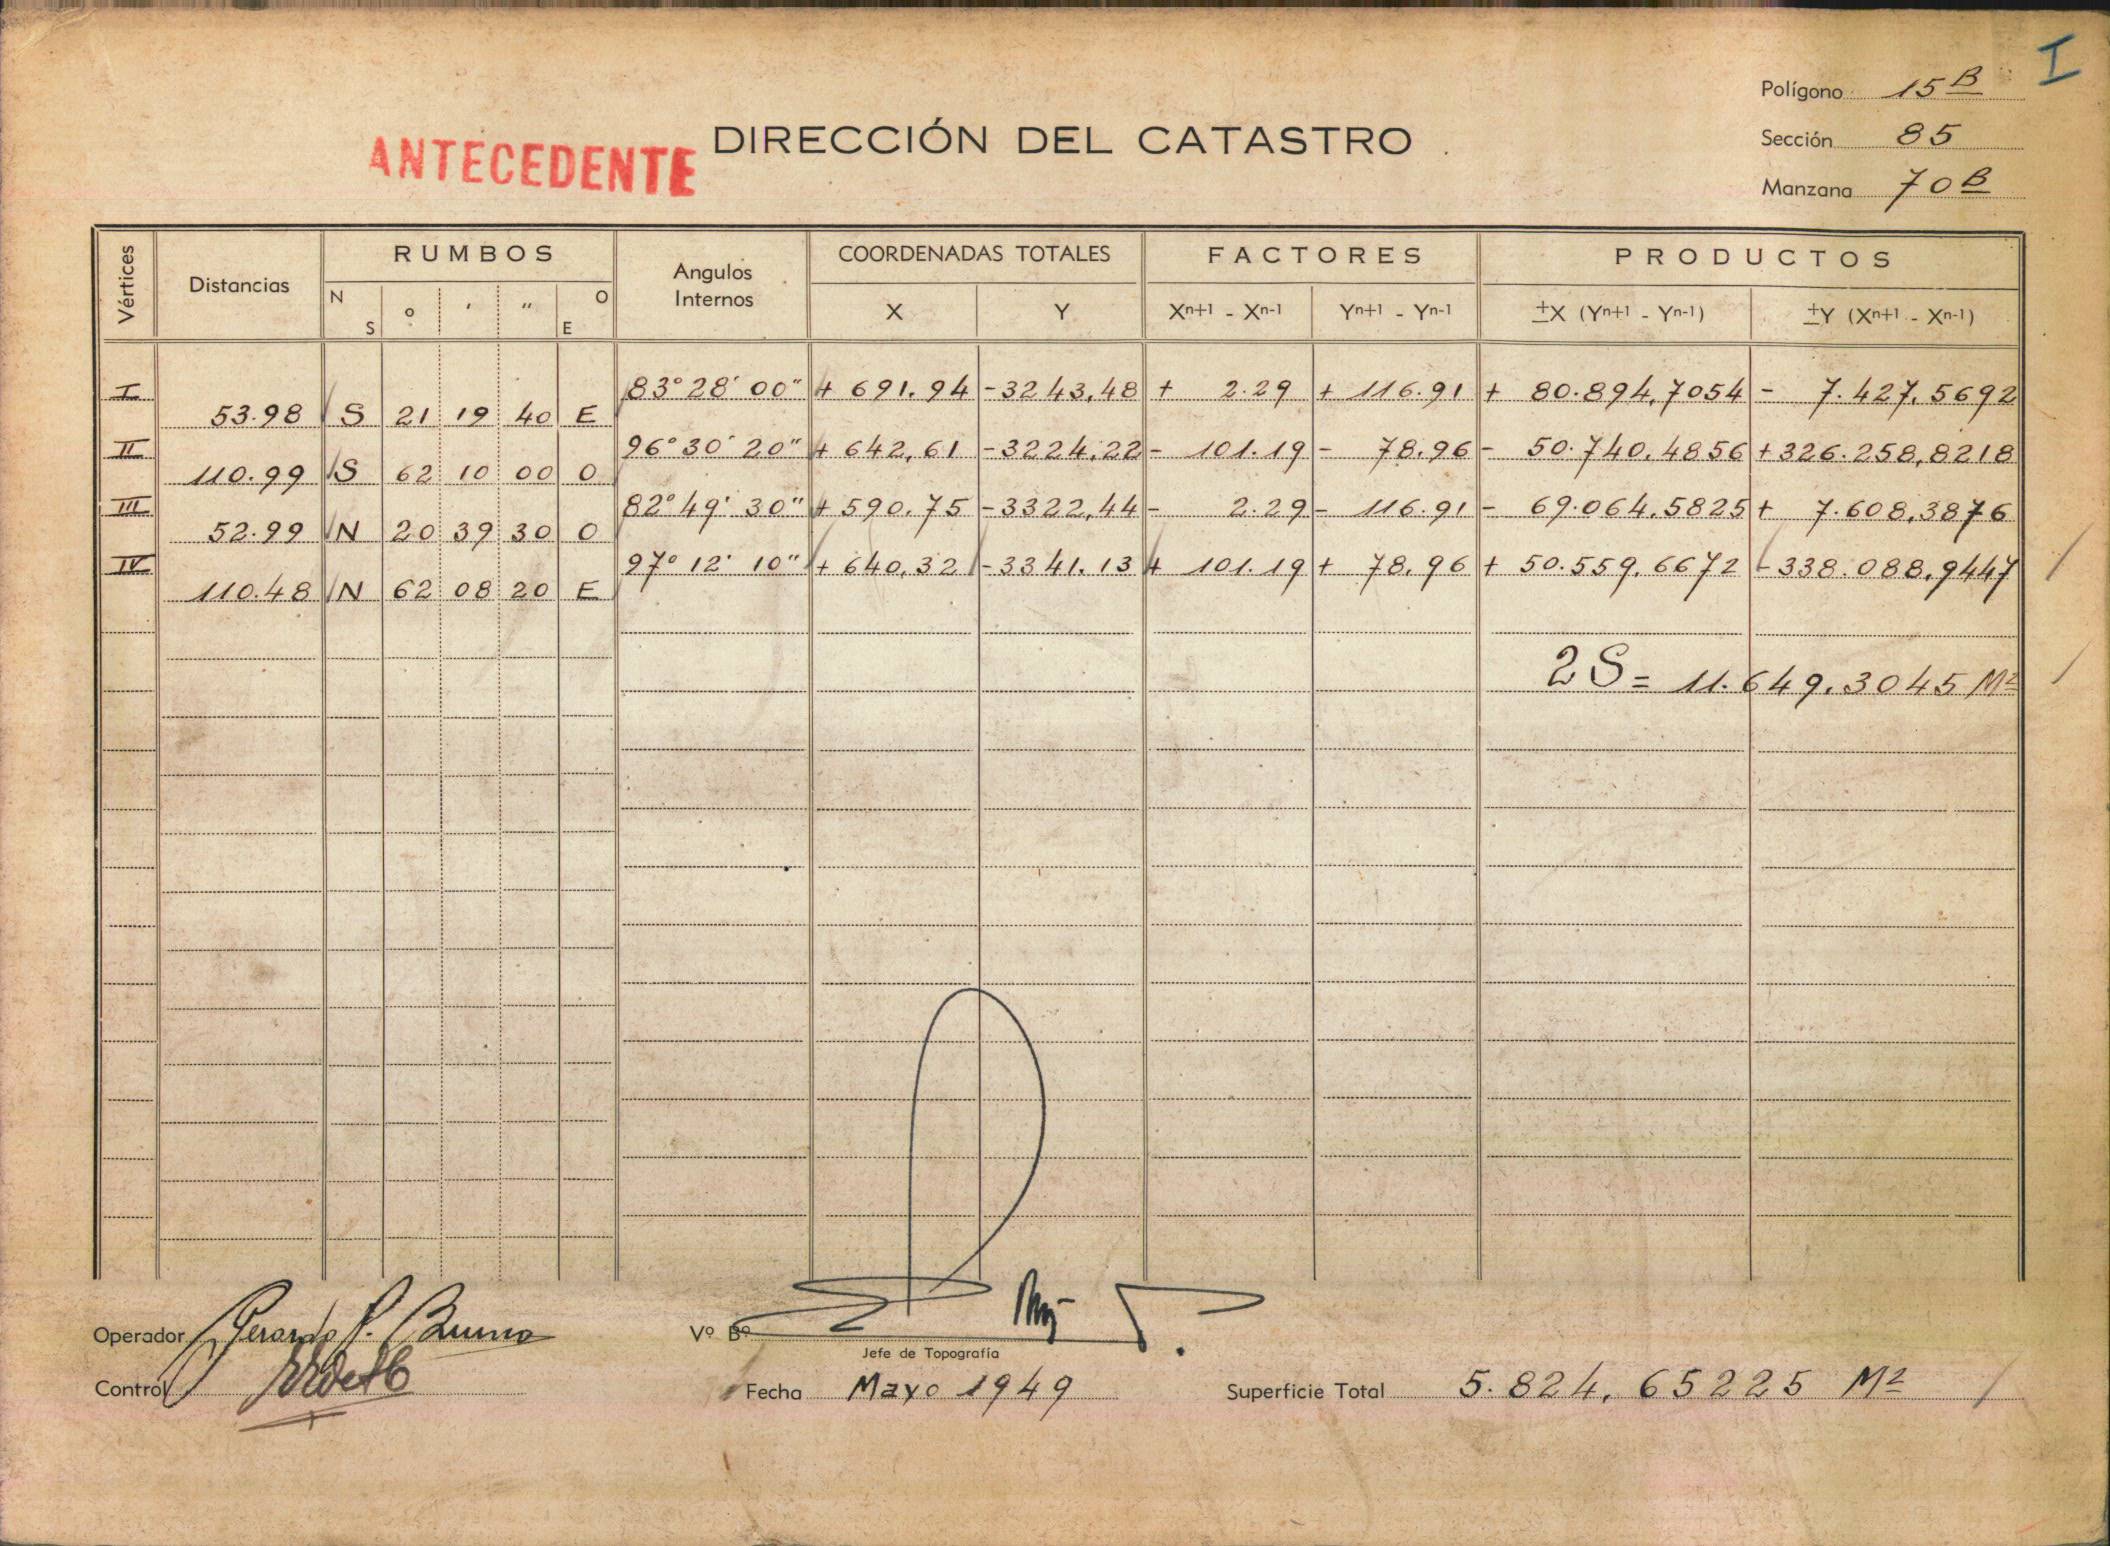 I
Polígono 15 B
ANTECEDENTE DIRECCIÓN DEL CATASTRO
Sección 85
Manzana 70 B
Vértices Distancias RUMBOS Angulos Internos COORDENADAS TOTALES FACTORES PRODUCTOS
N S ° ' " O E X Y Xn+1 - Xn-1 Yn+1 - Yn-1 ±X (Yn+1 - Yn-1) ±Y (Xn+1 - Xn-1)
I 83° 28' 00" + 691.94 -3243,48 + 2.29 + 116.91 + 80.894,7054 - 7.427,5692
53.98 S 21 19 40 E
II 96° 30' 20" + 642,61 -3224,22 - 101.19 - 78.96 - 50.740.4856 +326.258,8218
110.99 S 62 10 00 O
III 82° 49' 30" + 590.75 -3322,44 - 2.29 - 116.91 - 69.064.5825 + 7.608,3876
52.99 N 20 39 30 O
IV 97° 12' 10" + 640,32 -3341.13 + 101.19 + 78.96 + 50.559.6672 -338.088,9447
110.48 N 62 08 20 E
2S= 11.649.3045 M2
Operador Gerardo P. Bruno Vº Bº
Jefe de Topografía
Control Fecha Mayo 1949 Superficie Total 5.824,65225 M2